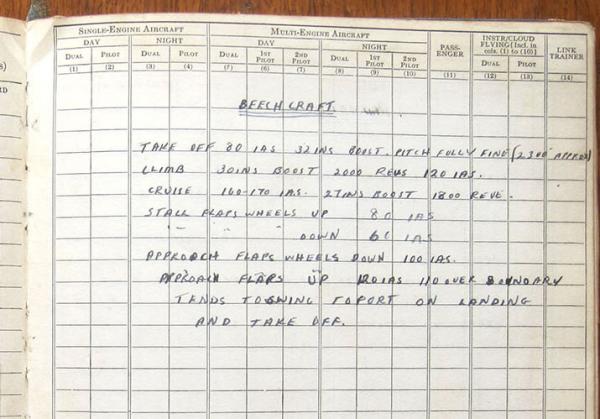 SINGLE-ENGINE AIRCRAFT MULTI-ENGINE AIRCRAFT PASS-ENGER INSTR/CLOUD FLYING [Incl. in cols. (1) to (10)] LINK TRAINER
DAY NIGHT DAY NIGHT
DUAL PILOT DUAL PILOT DUAL 1ST PILOT 2ND PILOT DUAL 1ST PILOT 2ND PILOT DUAL PILOT
(1) (2) (3) (4) (5) (6) (7) (8) (9) (10) (11) (12) (13) (14)
BEECHCRAFT
TAKE OFF 80 IAS 32INS BOOST. PITCH FULLY FINE (2300 APPROX)
CLIMB 30INS BOOST 2000 REVS 120 IAS.
CRUISE 160-170 IAS. 27INS BOOST 1800 REVS.
STALL FLAPS WHEELS UP 80 IAS
" " " DOWN 60 IAS
APPROACH FLAPS WHEELS DOWN 100 IAS.
APPROACH FLAPS UP 120 IAS 110 OVER BOUNDARY
TENDS TO SWING TO PORT ON LANDING
AND TAKE OFF.